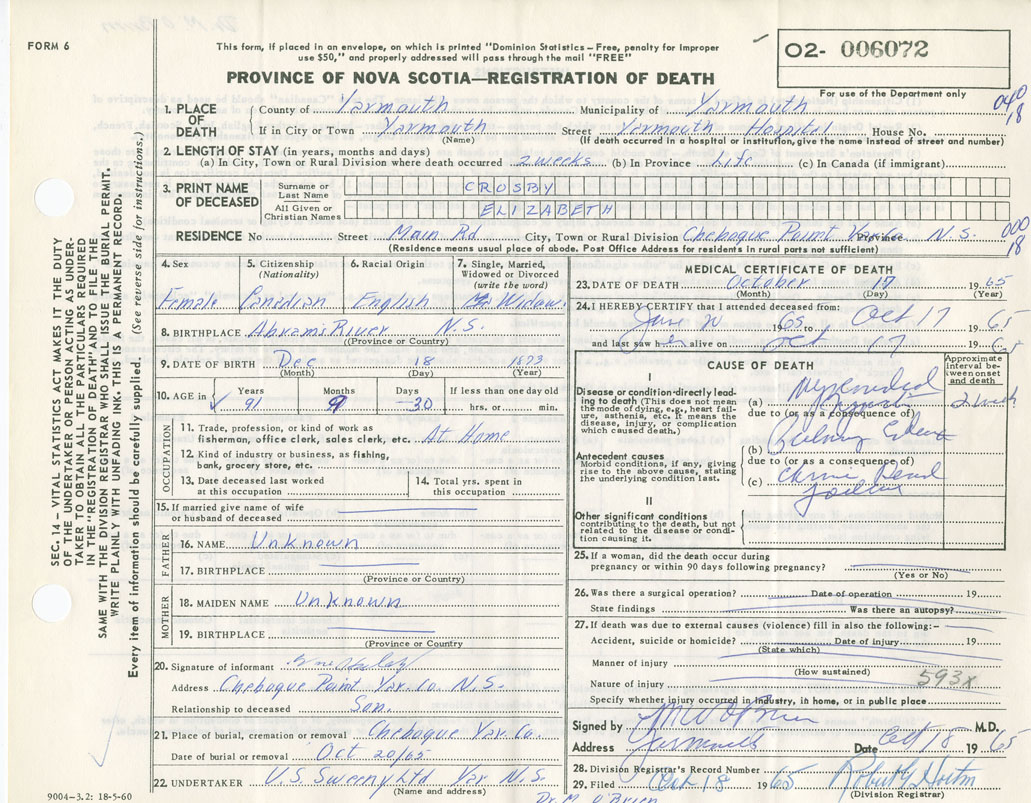 FORM 6
This form, if placed in an envelope, on which is printed "Dominion Statistics - Free, penalty for improper
use $50," and properly addressed will pass through the mail "FREE"
PROVINCE OF NOVA SCOTIA—REGISTRATION OF DEATH
02- 006072
For use of the Department only
040
18
1. PLACE OF DEATH
County of Yarmouth Municipality of Yarmouth
If in City or Town Yarmouth Street Yarmouth Hospital House No.
(Name) (If death occurred in a hospital or institution, give the name instead of street and number)
2. LENGTH OF STAY (in years, months and days)
(a) In City, Town or Rural Division where death occurred 2 weeks (b) In Province Life (c) In Canada (if immigrant)
3. PRINT NAME OF DECEASED
Surname or Last Name CROSBY
All Given or Christian Names ELIZABETH
RESIDENCE No Street Main Rd City, Town or Rural Division Chebogue Point Yar. Co Province N.S.
(Residence means usual place of abode. Post Office Address for residents in rural parts not sufficient)
000
18
4. Sex
Female
5. Citizenship
(Nationality)
Canadian
6. Racial Origin
English
7. Single, Married, Widowed or Divorced
(write the word)
Widow
8. BIRTHPLACE Abrams River N.S.
(Province or Country)
9. DATE OF BIRTH Dec 18 1873
(Month) (Day) (Year)
10. AGE in
Years 91
Months 9
Days 30
If less than one day old
hrs. or min.
OCCUPATION
11. Trade, profession or kind of work as
fisherman, office clerk, sales clerk, etc. At Home
12. Kind of industry or business, as fishing,
bank, grocery store, etc.
13. Date deceased last worked
at this occupation
14. Total yrs. spent in
this occupation
15. If married give name of wife
or husband of deceased
FATHER
16. NAME Unknown
17. BIRTHPLACE
(Province or Country)
MOTHER
18. MAIDEN NAME Unknown
19. BIRTHPLACE
(Province or Country)
20. Signature of informant
Address Chebogue Point Yar. Co. N.S.
Relationship to deceased Son.
21. Place of burial, cremation or removal Chebogue Yar. Co.
Date of burial or removal Oct 20/65
22. UNDERTAKER V.S. Sweeny Ltd Yar N.S.
(Name and address)
9004-3.2: 18-5-60
Dr. M. O'Brien
MEDICAL CERTIFICATE OF DEATH
23. DATE OF DEATH October 17 1965
(Month) (Day) (Year)
24. I HEREBY CERTIFY that I attended deceased from:
1965 to Oct 17 1965
and last saw her alive on Oct 17 1965
CAUSE OF DEATH
Approximate interval between onset and death
I
Disease or condition directly leading to death (This does not mean
the mode of dying, e.g., heart failure, asthenia, etc. It means the
disease, injury, or complication
which caused death.)
(a)
due to (or as a consequence of)
Antecedent causes
Morbid conditions, if any, giving
rise to the above cause, stating
the underlying condition last.
(b)
due to (or as a consequence of)
(c)
II
Other significant conditions
contributing to the death, but not
related to the disease or condition causing it.
25. If a woman, did the death occur during
pregnancy or within 90 days following pregnancy?
(Yes or No)
26. Was there a surgical operation? Date of operation 19
State findings Was there an autopsy?
27. If death was due to external causes (violence) fill in also the following:-
Accident, suicide or homicide? Date of injury 19
(State which)
Manner of injury
(How sustained)
Nature of injury 593x
Specify whether injury occurred in industry, in home, or in public place
Signed by M W O'Brien M.D.
Address Yarmouth Date Oct 18 1965
28. Division Registrar's Record Number
29. Filed Oct 18 1965 Robert G Horton
(Division Registrar)
SEC. 14 - VITAL STATISTICS ACT MAKES IT THE DUTY
OF THE UNDERTAKER OR PERSON ACTING AS UNDERTAKER TO OBTAIN ALL THE PARTICULARS REQUIRED
IN THE "REGISTRATION OF DEATH" AND TO FILE THE
SAME WITH THE DIVISION REGISTRAR WHO SHALL ISSUE THE BURIAL PERMIT.
WRITE PLAINLY WITH UNFADING INK. THIS IS A PERMANENT RECORD.
Every item of information should be carefully supplied. (See reverse side for instructions.)